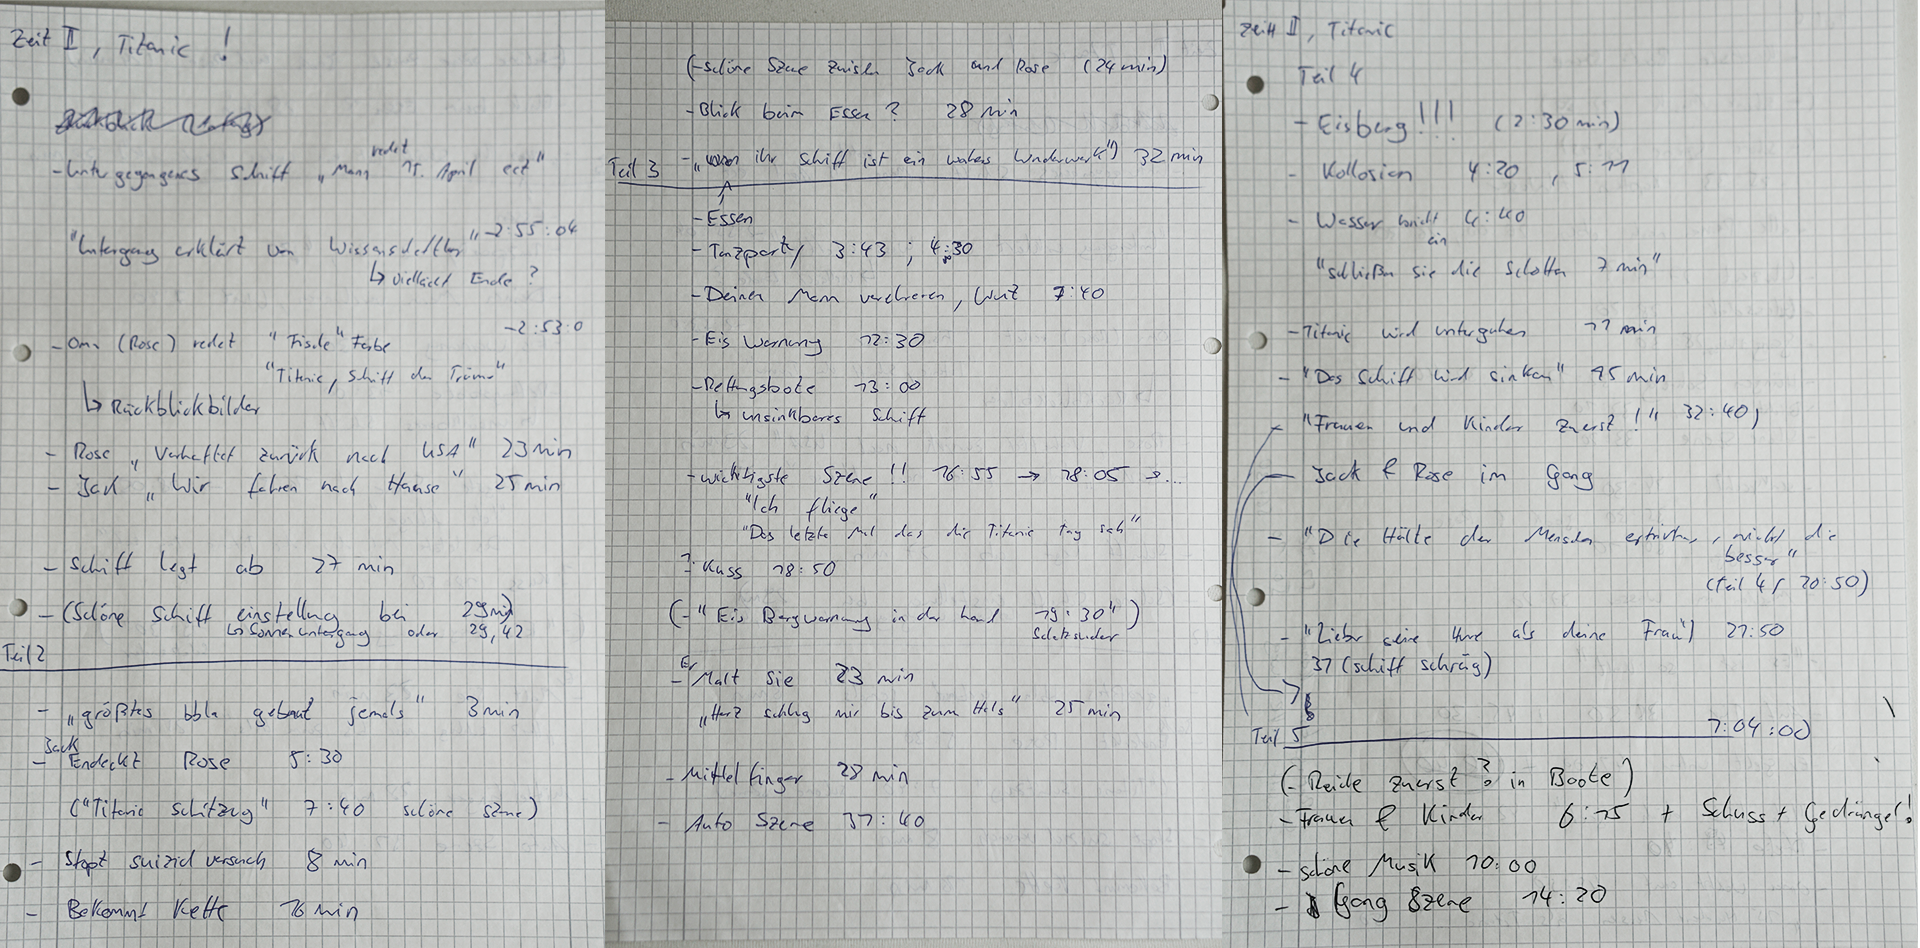 Zeit II, Titanic !
- Untergegangenes Schiff „Mann redet 15. April ect"
"Untergang erklärt von Wissenschaftler" -2:55:04
↳ vielleicht Ende ?
- Oma (Rose) redet "Fische" Farbe -2:53:0
"Titanic, Schiff der Träume"
↳ Rückblickbilder
- Rose „Verhaftet zurück nach USA" 23 min
- Jack „Wir fahren nach Hause" 25 min
- Schiff legt ab 27 min
- (Schöne Schiff einstellung bei 29 min)
↳ Sonnenuntergang oder 29,42
Teil 2
- „größtes bbla gebaut jemals" 3 min
- Jack Endeckt Rose 5:30
("Titanic 7:40 schöne szene)
- Stopt suizid versuch 8 min
- Bekommt Kette 16 min
(- schöne Szene zwischen Jack und Rose (24 min)
- Blick beim Essen ? 28 min
- „ihr Schiff ist ein wahres Wunderwerk") 32 min
Teil 3
- Essen
- Tanzparty 3:43 ; 4:30
- Deinen Mann verehren, Wut 7:40
- Eis Warnung 12:30
- Rettungsboote 13:00
↳ unsinkbares Schiff
- wichtigste Szene !! 16:55 → 18:05 → ...
"Ich fliege"
"Das letzte Mal das die Titanic Tag sah"
Kuss 18:50
(- "Eis Bergwarnung in der hand 19:30")
- Er Malt Sie 23 min
„Herz schlug mir bis zum Hals" 25 min
- Mittelfinger 28 min
- Auto Szene 31:40
Zeit II, Titanic
Teil 4
- Eisberg !!! (2:30 min)
- Kollosion 4:20 , 5:11
- Wasser bricht ein 4:40
"schließen sie die Schotten 7 min"
- Titanic wird untergehen 11 min
- "Das Schiff wird sinken" 15 min
- "Frauen und Kinder zuerst !" 32:40
- Jack & Rose im Gang
- "Die Hälfte der Menschen ertrinken, nicht die
besser"
(Teil 4, 20:50)
- "Lieber seine Hure als deine Frau") 27:50
37 (schiff schräg)
Teil 5 1:04:00
(- Reiche zuerst ? in Boote)
- Frauen & Kinder 6:15 + Schuss + Gedrängel!
- schöne Musik 10:00
- Gang Szene 14:20